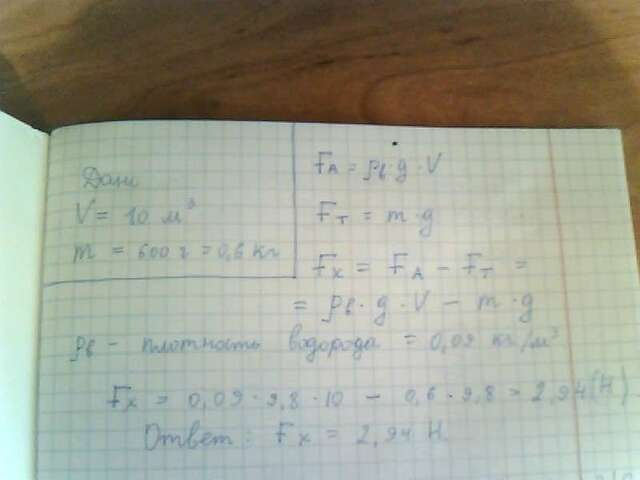 Дано
V = 10 м³
m = 600 г = 0,6 кг
Fᴀ = ρв·g·V
Fт = m·g
Fх = Fᴀ - Fт =
= ρв·g·V - m·g
ρв - плотность водорода = 0,09 кг/м³
Fх = 0,09·9,8·10 - 0,6·9,8 = 2,94(Н)
Ответ: Fх = 2,94 Н.